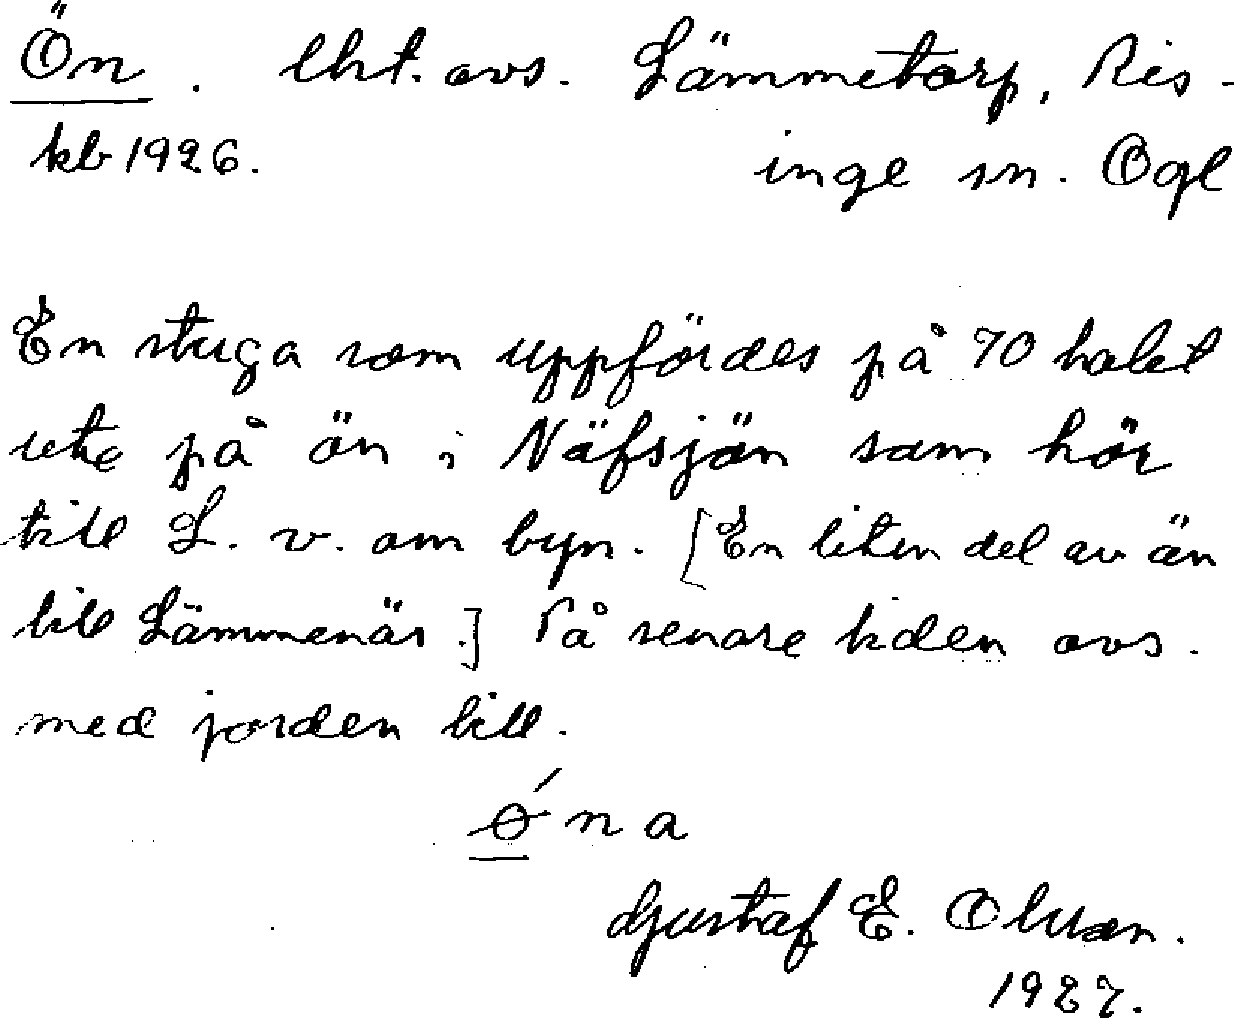 Ön. lht. avs. Lämmetorp, Ris-
kb 1926. inge sn. Ögl
En stuga som uppfördes på 70 talet
ute på ön i Näfsjön som hör
till L. v. om byn. [En liten del av ön
till Lämmenäs.] På senare tiden avs.
med jorden till.
ǿ n a
Gustaf E. Olsson.
1927.